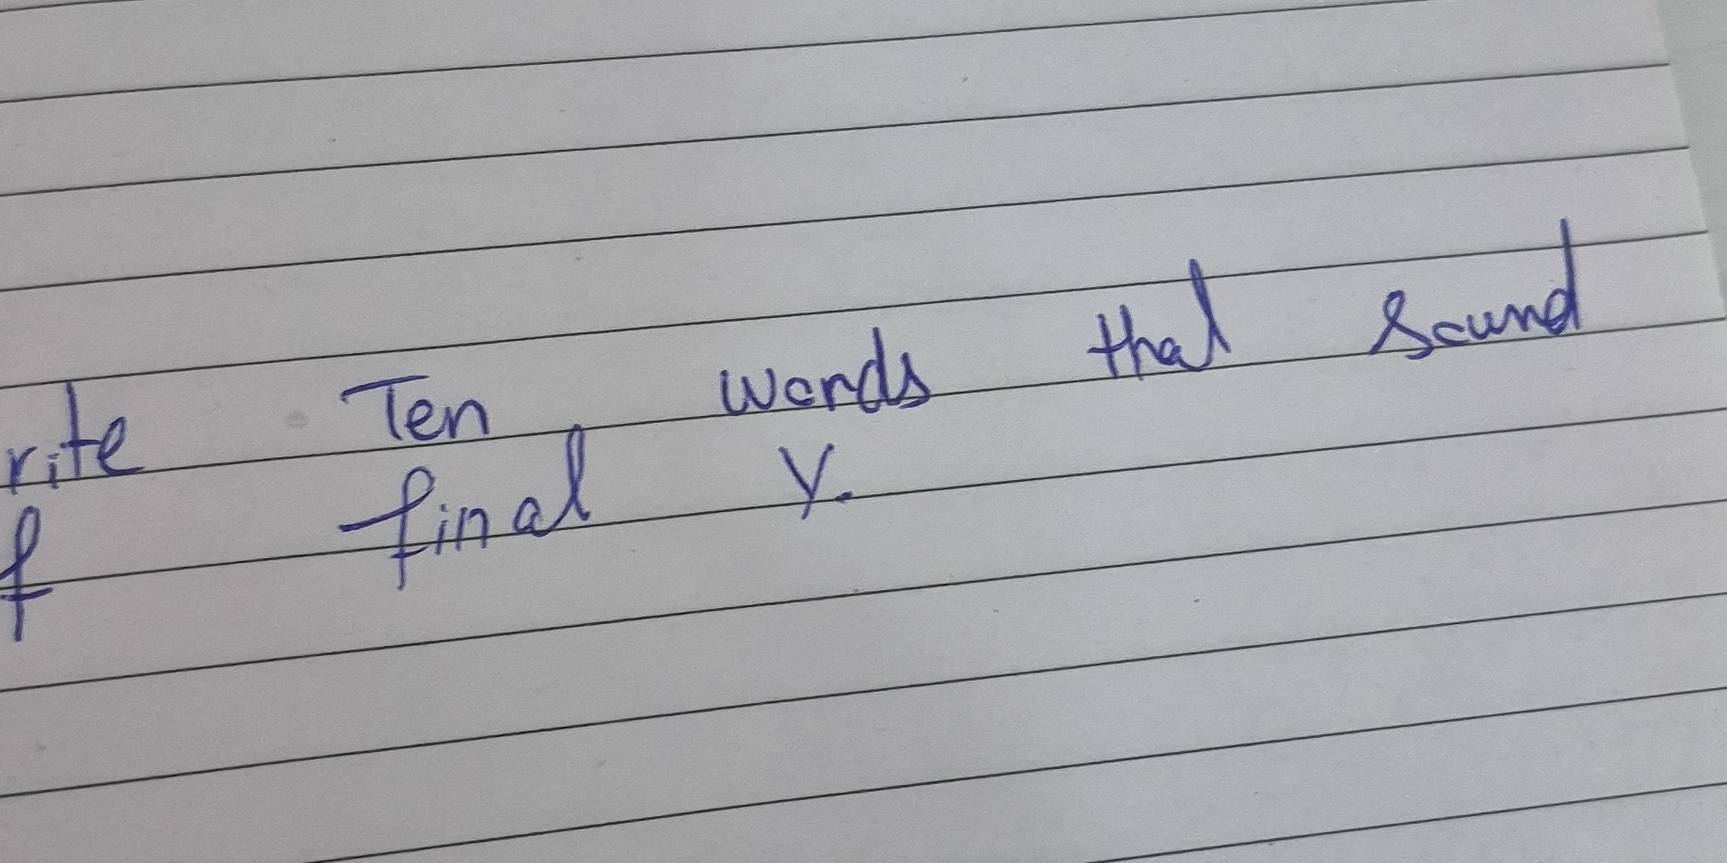 rite Ten words that sound
f final y.